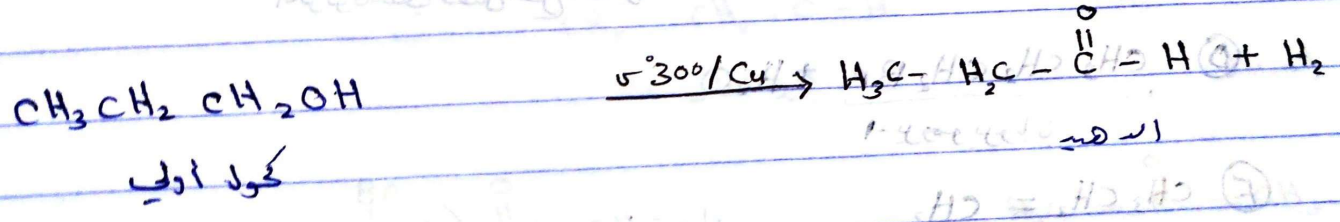 CH₃CH₂CH₂OH —س°300/Cu→ H₃C - H₂C - C(=O) - H + H₂
كحول أولي
الدهيد